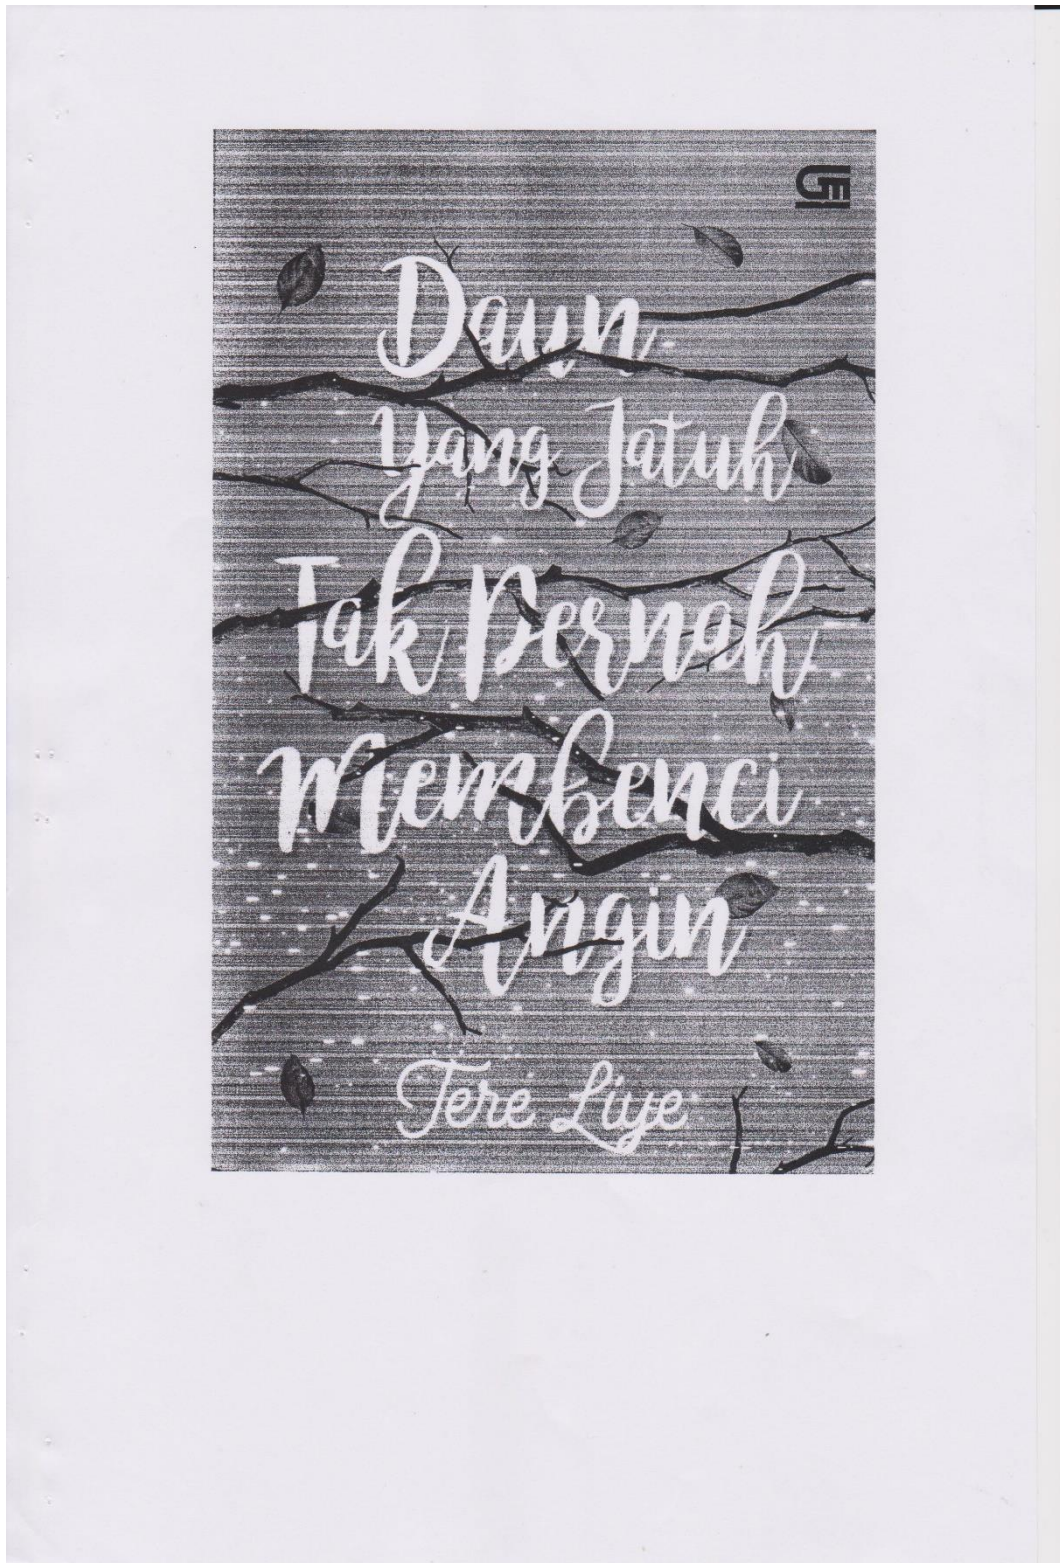 Daun
yang Jatuh
Tak Pernah
Membenci
Angin
Tere Liye